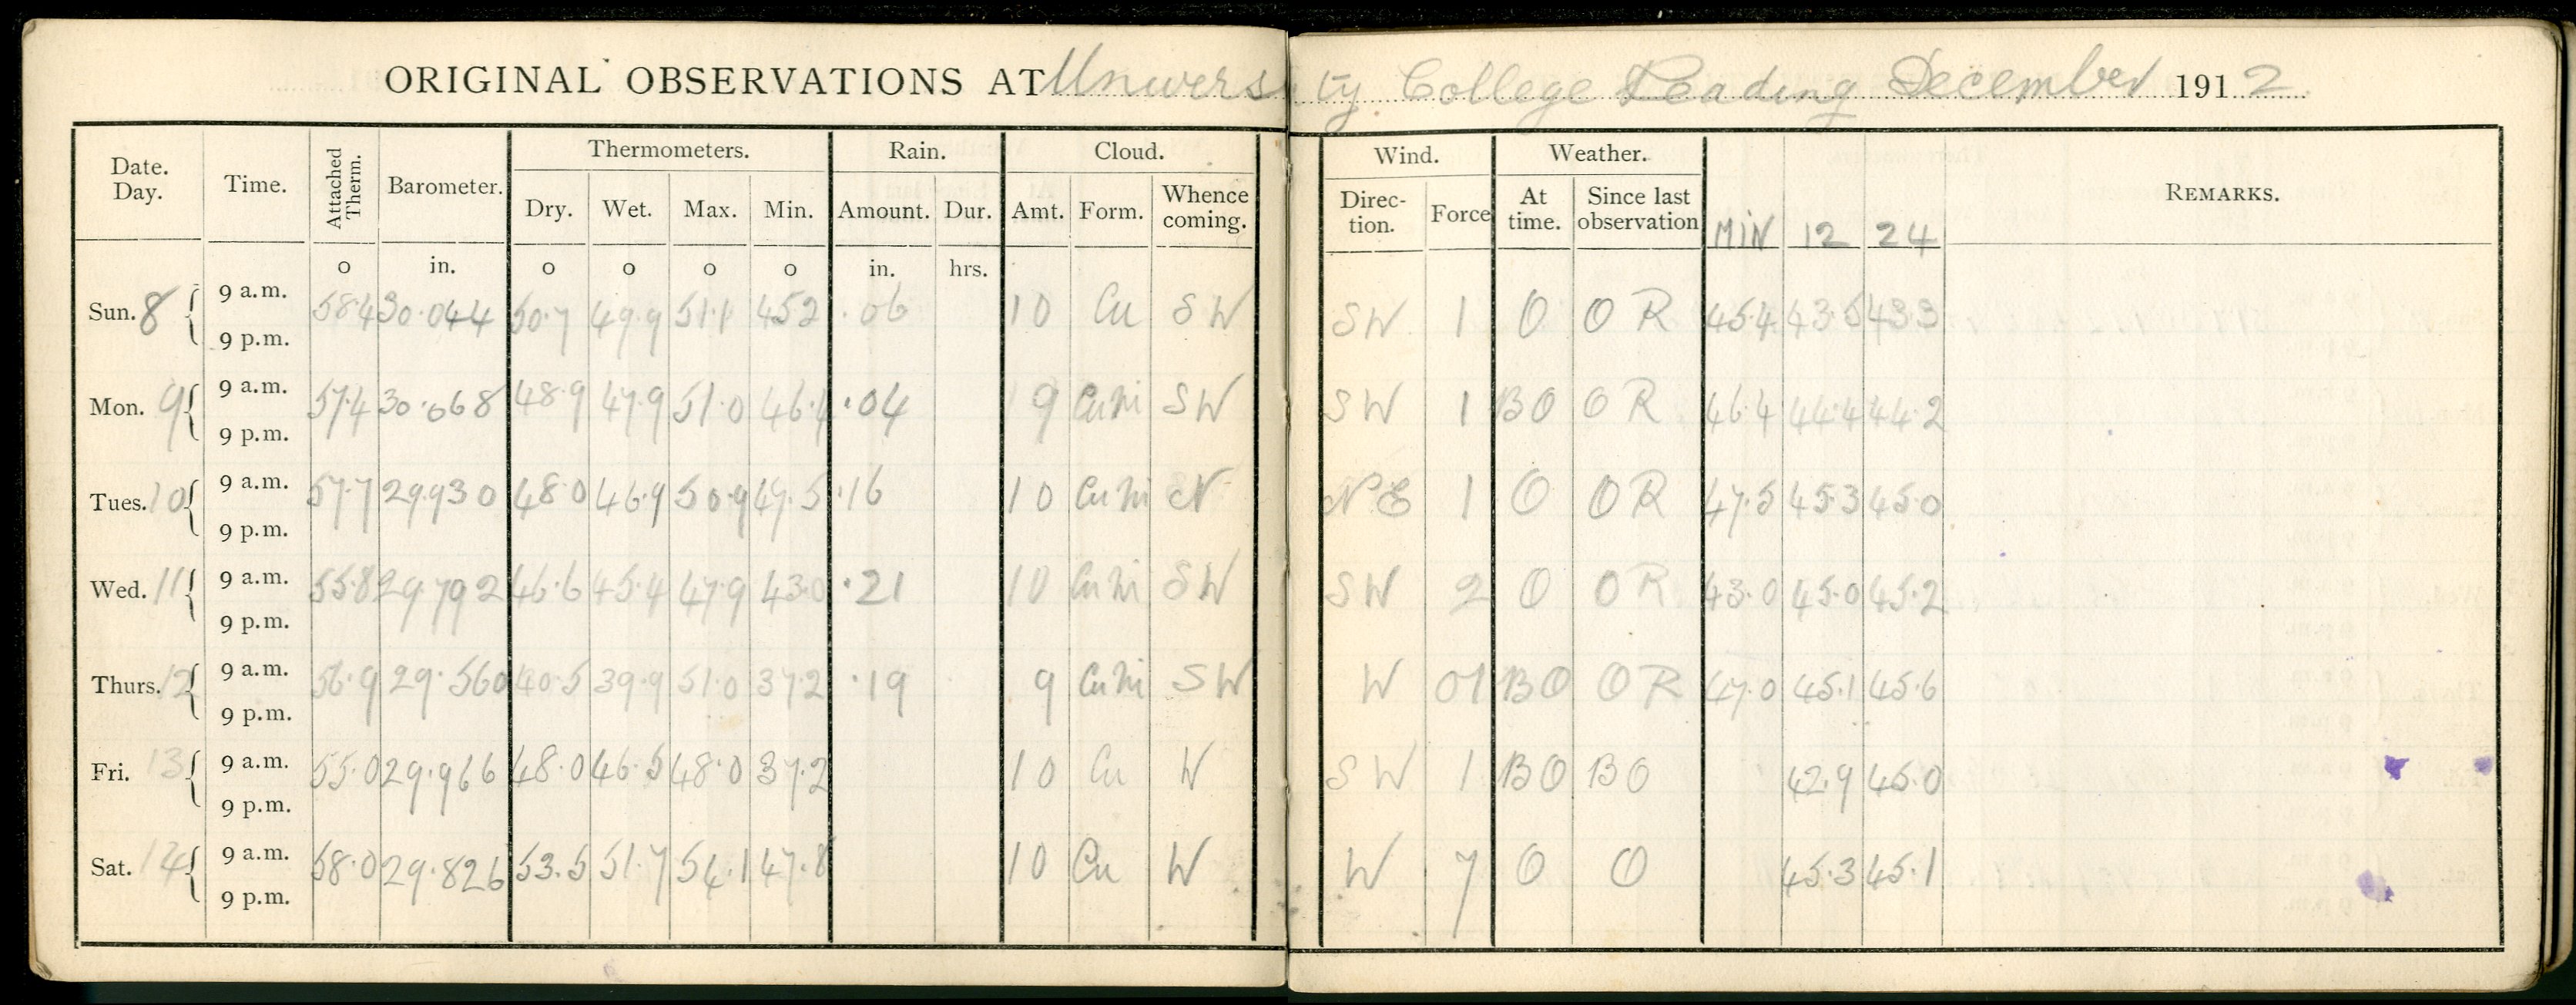 ORIGINAL OBSERVATIONS AT University College Reading December 1912
Date. Day. Time. Attached Therm. Barometer. Thermometers. Rain. Cloud. Wind. Weather. REMARKS.
Dry. Wet. Max. Min. Amount. Dur. Amt. Form. Whence coming. Direc- tion. Force At time. Since last observation MIN 12 24
o in. o o o o in. hrs.
Sun. 8 9 a.m. 58.4 30.044 50.7 49.9 51.1 45.2 .06 10 Cu SW SW 1 O O R 45.4 43.5 43.3
9 p.m.
Mon. 9 9 a.m. 57.4 30.068 48.9 47.9 51.0 46.4 .04 9 CuNi SW SW 1 BO O R 46.4 44.4 44.2
9 p.m.
Tues. 10 9 a.m. 57.7 29.930 48.0 46.9 50.9 47.5 .16 10 CuNi N NE 1 O O R 47.5 45.3 45.0
9 p.m.
Wed. 11 9 a.m. 55.8 29.792 46.6 45.4 47.9 43.0 .21 10 CuNi SW SW 2 O O R 43.0 45.0 45.2
9 p.m.
Thurs. 12 9 a.m. 56.9 29.560 40.5 39.9 51.0 37.2 .19 9 CuNi SW W 01 BO O R 47.0 45.1 45.6
9 p.m.
Fri. 13 9 a.m. 55.0 29.966 48.0 46.5 48.0 37.2 10 Cu W SW 1 BO BO 42.9 45.0
9 p.m.
Sat. 14 9 a.m. 58.0 29.826 53.5 51.7 54.1 47.8 10 Cu W W 7 O O 45.3 45.1
9 p.m.